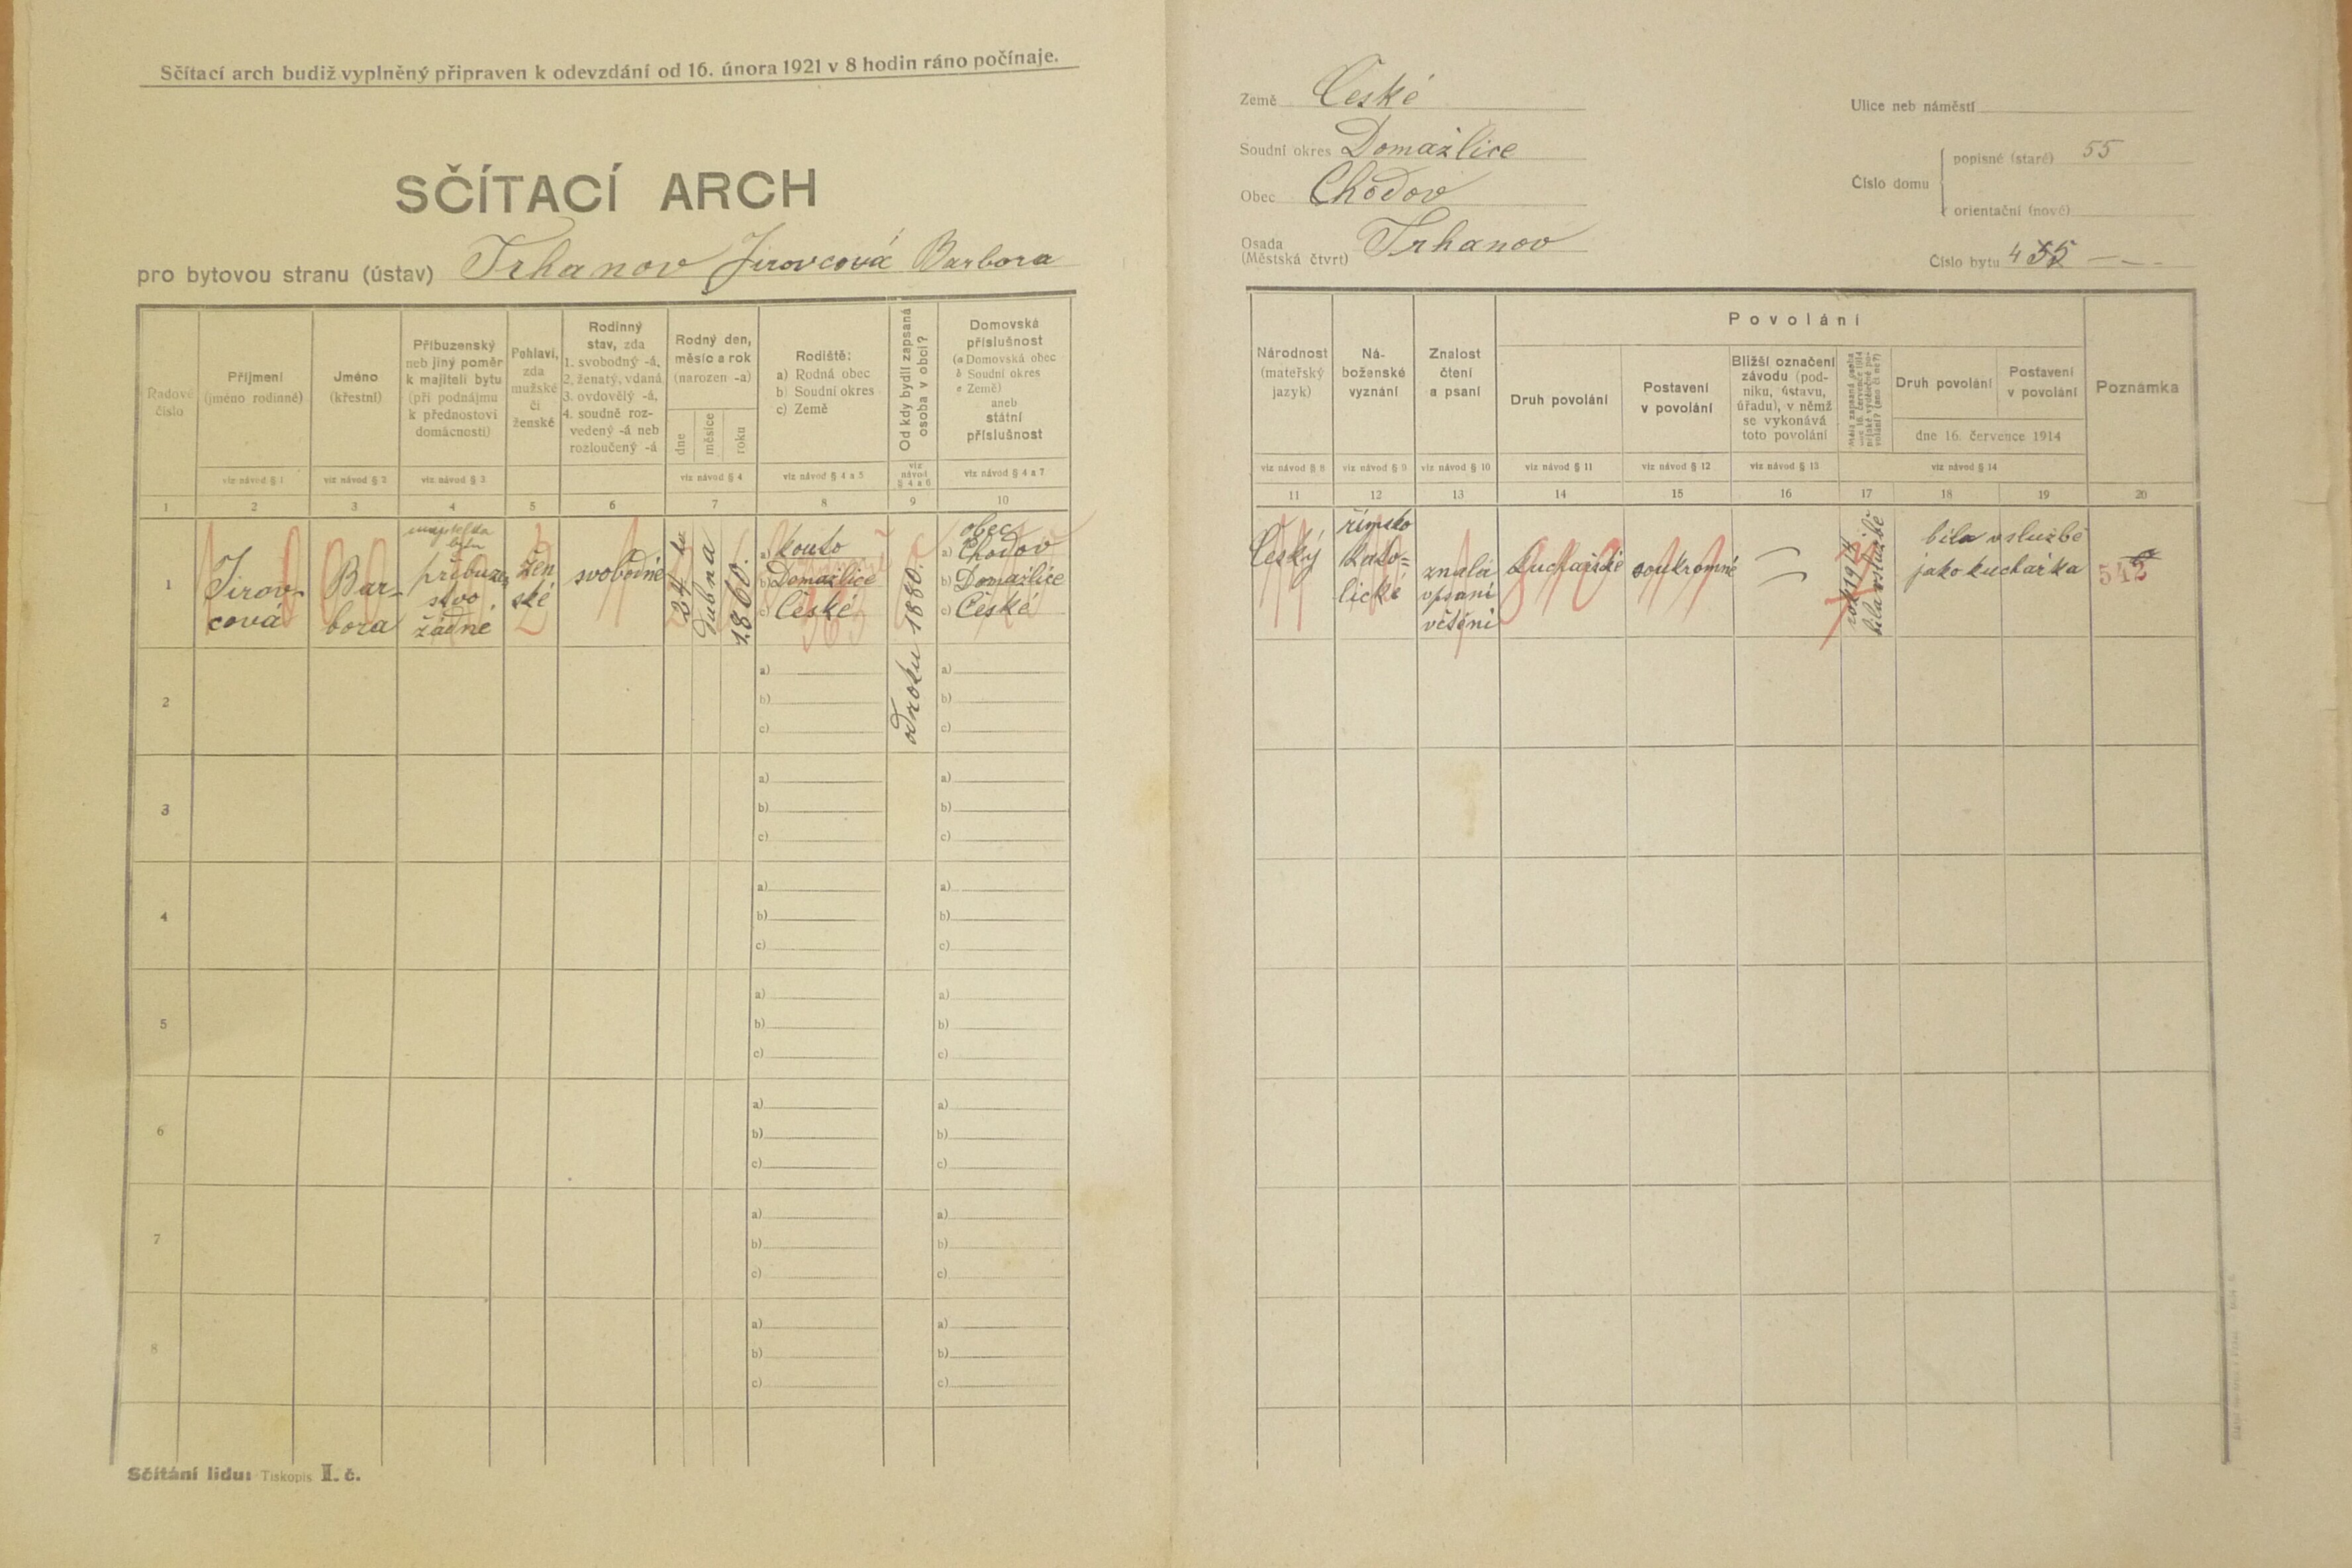 Sčítací arch budiž vyplněný připraven k odevzdání od 16. února 1921 v 8 hodin ráno počínaje.
SČÍTACÍ ARCH
pro bytovou stranu (ústav) Trhanov Jirovcová Barbora
Země České
Soudní okres Domažlice
Obec Chodov
Osada
(Městská čtvrt) Trhanov
Ulice neb náměstí
Číslo domu
popisné (staré) 55
orientační (nové)
Číslo bytu 4
Řadové
číslo
Příjmení
(jméno rodinné)
viz návod § 1
Jméno
(křestní)
viz návod § 2
Příbuzenský
neb jiný poměr
k majiteli bytu
(při podnájmu
k přednostovi
domácnosti)
viz návod § 3
Pohlaví,
zda
mužské
či
ženské
Rodinný
stav, zda
1. svobodný -á,
2. ženatý, vdaná
3. ovdovělý -á,
4. soudně roz-
vedený -á neb
rozloučený -á
Rodný den,
měsíc a rok
(narozen -a)
dne
měsíce
roku
viz návod § 4
Rodiště:
a) Rodná obec
b) Soudní okres
c) Země
viz návod § 4 a 5
Od kdy bydlí zapsaná
osoba v obci?
viz
návod
§ 4 a 6
Domovská
příslušnost
(a Domovská obec
b Soudní okres
c Země)
aneb
státní
příslušnost
viz návod § 4 a 7
1 2 3 4 5 6 7 8 9 10
1
Jirov-
cová
Bar-
bora
příbuzen
stvo
žádné
žen
ské
svobodné
24 ho
dubna
1860.
a) Kouto
b) Domažlice
c) České
od roku 1880.
obec
a) Chodov
b) Domažlice
c) České
2
a)
b)
c)
a)
b)
c)
3
a)
b)
c)
a)
b)
c)
4
a)
b)
c)
a)
b)
c)
5
a)
b)
c)
a)
b)
c)
6
a)
b)
c)
a)
b)
c)
7
a)
b)
c)
a)
b)
c)
8
a)
b)
c)
a)
b)
c)
Sčítání lidu: Tiskopis II. č.
Národnost
(mateřský
jazyk)
viz návod § 8
Ná-
boženské
vyznání
viz návod § 9
Znalost
čtení
a psaní
viz návod § 10
Povolání
Druh povolání
viz návod § 11
Postavení
v povolání
viz návod § 12
Bližší označení
závodu (pod-
niku, ústavu,
úřadu), v němž
se vykonává
toto povolání
viz návod § 13
Druh povolání
Postavení
v povolání
dne 16. července 1914
viz návod § 14
Poznámka
11 12 13 14 15 16 17 18 19 20
Český
římsko
kato=
lické
znalá
v psaní
včtění
kuchařské
soukromné
rok 1914
bila vslužbě
bila vslužbě
jako kuchařka